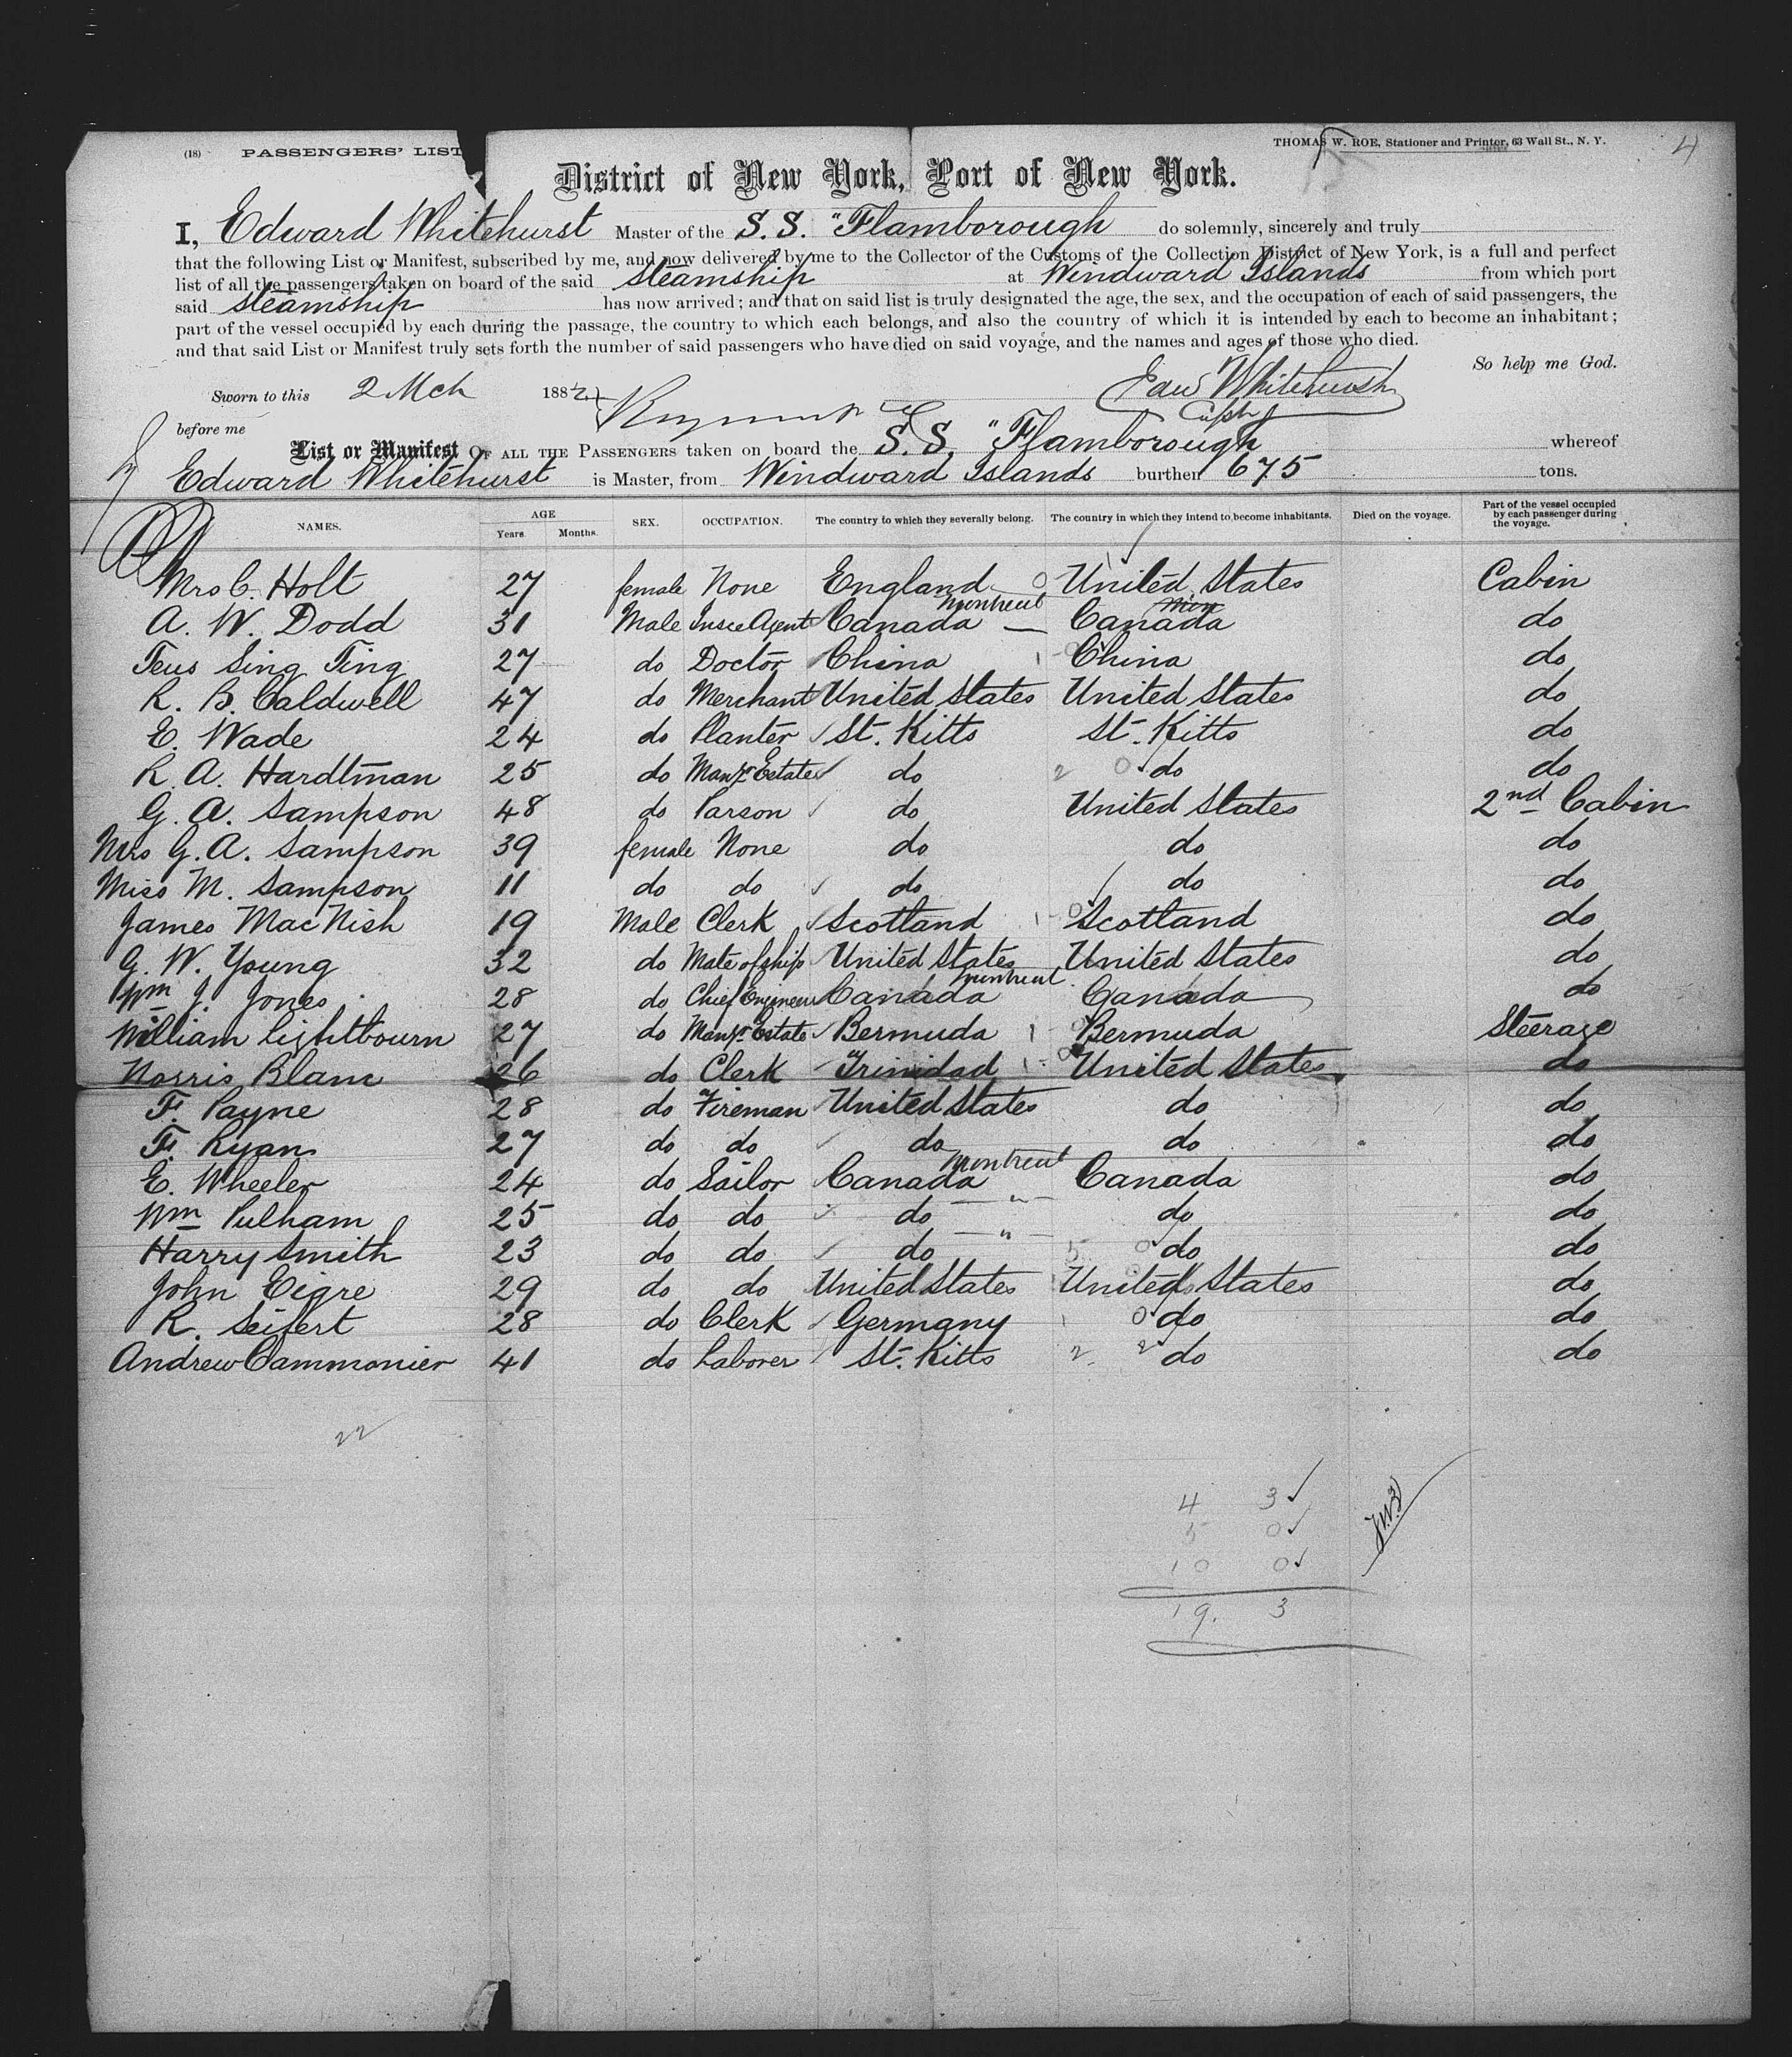 4
(18) PASSENGERS' LIST
THOMAS W. ROE, Stationer and Printer, 63 Wall St., N. Y.
District of New York, Port of New York.
I, Edward Whitehurst Master of the S. S. "Flamborough do solemnly, sincerely and truly
that the following List or Manifest, subscribed by me, and now delivered by me to the Collector of the Customs of the Collection District of New York, is a full and perfect
list of all the passengers taken on board of the said steamship at Windward Islands from which port
said steamship has now arrived; and that on said list is truly designated the age, the sex, and the occupation of each of said passengers, the
part of the vessel occupied by each during the passage, the country to which each belongs, and also the country of which it is intended by each to become an inhabitant;
and that said List or Manifest truly sets forth the number of said passengers who have died on said voyage, and the names and ages of those who died.
So help me God.
Sworn to this 2 Mch 188
Edw Whitehurst
before me
List or Manifest OF ALL THE PASSENGERS taken on board the S. S. "Flamborough whereof
Edward Whitehurst is Master, from Windward Islands burthen 675 tons.
NAMES. AGE Years. Months. SEX. OCCUPATION. The country to which they severally belong. The country in which they intend to become inhabitants. Died on the voyage. Part of the vessel occupied by each passenger during the voyage.
Mrs C. Holt 27 female None England 0 United States Cabin
A. W. Dodd 31 Male Insce Agent Canada Montreal — Canada do
Teus Sing Ting 27 do Doctor China 1 - China do
R. B. Caldwell 47 do Merchant United States United States do
E. Wade 24 do Planter St. Kitts St. Kitts do
R. A. Hardtman 25 do Mangr Estate do 2 0 do do
G. A. Sampson 48 do Parson do United States 2nd Cabin
Mrs G. A. Sampson 39 female None do do do
Miss M. Sampson 11 do do do do do
James MacNish 19 Male Clerk Scotland 1 - 0 Scotland do
G. W. Young 32 do Mate of ship United States United States do
Wm J. Jones 28 do Chief Engineer Canada Montreal Canada do
William Lightbourn 27 do Mangr Estate Bermuda 1 - Bermuda Steerage
Norris Blanc 26 do Clerk Trinidad 1 - 0 United States do
F. Payne 28 do Fireman United States do do
F. Ryan 27 do do do do do
E. Wheeler 24 do Sailor Canada Montreal Canada do
Wm Pulham 25 do do do — " — do do
Harry Smith 23 do do do — " — 5 0 do do
John Eigre 29 do do United States United States do
R. Seifert 28 do Clerk Germany 1 0 do do
Andrew Cammonier 41 do Laborer St. Kitts 2. 2 do do
22
4 3 ✓
5 0 ✓
10 0 ✓
19. 3